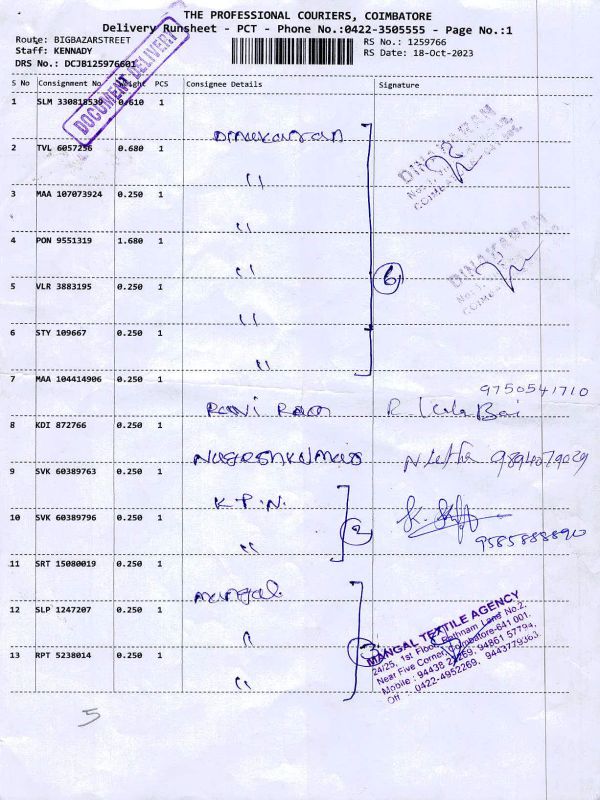 THE PROFESSIONAL COURIERS, COIMBATORE
Delivery Runsheet - PCT - Phone No.:0422-3505555 - Page No.:1
Route: BIGBAZARSTREET
Staff: KENNADY
DRS No.: DCJB125976601
RS No.: 1259766
RS Date: 18-Oct-2023
DOCUMENT DELIVERY
S No Consignment No Weight PCS Consignee Details Signature
1 SLM 330818539 0.610 1 Dinakaran
2 TVL 6057256 0.680 1 "
3 MAA 107073924 0.250 1 "
4 PON 9551319 1.680 1 "
5 VLR 3883195 0.250 1 "
6 STY 109667 0.250 1 "
6
DINAKARAN
DINAKARAN
7 MAA 104414906 0.250 1 Ravi Ram R. Kala Bai 9750541710
8 KDI 872766 0.250 1 9894079029
9 SVK 60389763 0.250 1 K.P.N.
10 SVK 60389796 0.250 1 "
2
9585888890
11 SRT 15080019 0.250 1 mangal
12 SLP 1247207 0.250 1 "
13 RPT 5238014 0.250 1 "
3
MANGAL TEXTILE AGENCY
24/25, 1st Floor, Rathnam Lane No.2,
Near Five Corner, Coimbatore-641 001.
Mobile : 94438 94861 57794,
Off : 0422-4952269, 9443779363.
5